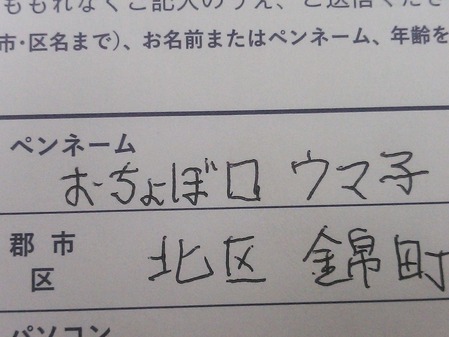 ももれなくご記入のうえ、ご送信くださ
市・区名まで）、お名前またはペンネーム、年齢を
ペンネーム
おちょぼ口 ウマ子
郡 市
区
北区 錦町
パソコン